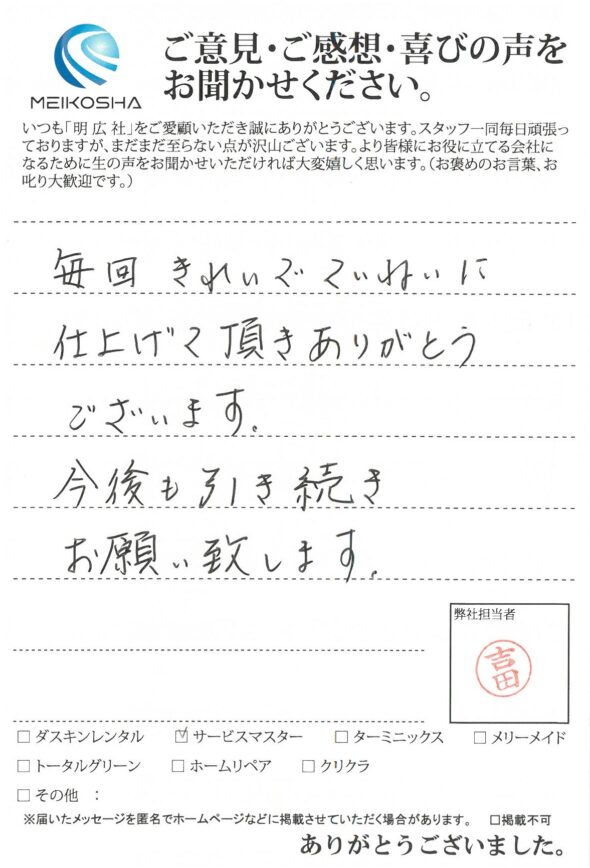 MEIKOSHA
ご意見・ご感想・喜びの声を
お聞かせください。
いつも「明広社」をご愛顧いただき誠にありがとうございます。スタッフ一同毎日頑張っ
ておりますが、まだまだ至らない点が沢山ございます。より皆様にお役に立てる会社に
なるために生の声をお聞かせいただければ大変嬉しく思います。（お褒めのお言葉、お
叱り大歓迎です。）
毎回 きれいでていねいに
仕上げて頂きありがとう
ございます。
今後も引き続き
お願い致します。
弊社担当者
吉田
□ ダスキンレンタル ☑ サービスマスター □ ターミニックス □ メリーメイド
□ トータルグリーン □ ホームリペア □ クリクラ
□ その他 ：
※届いたメッセージを匿名でホームページなどに掲載させていただく場合があります。 □掲載不可
ありがとうございました。